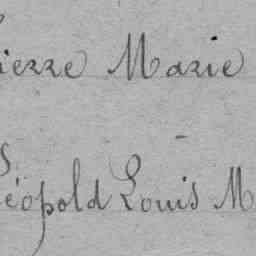 ierre Marie
Léopold Louis M